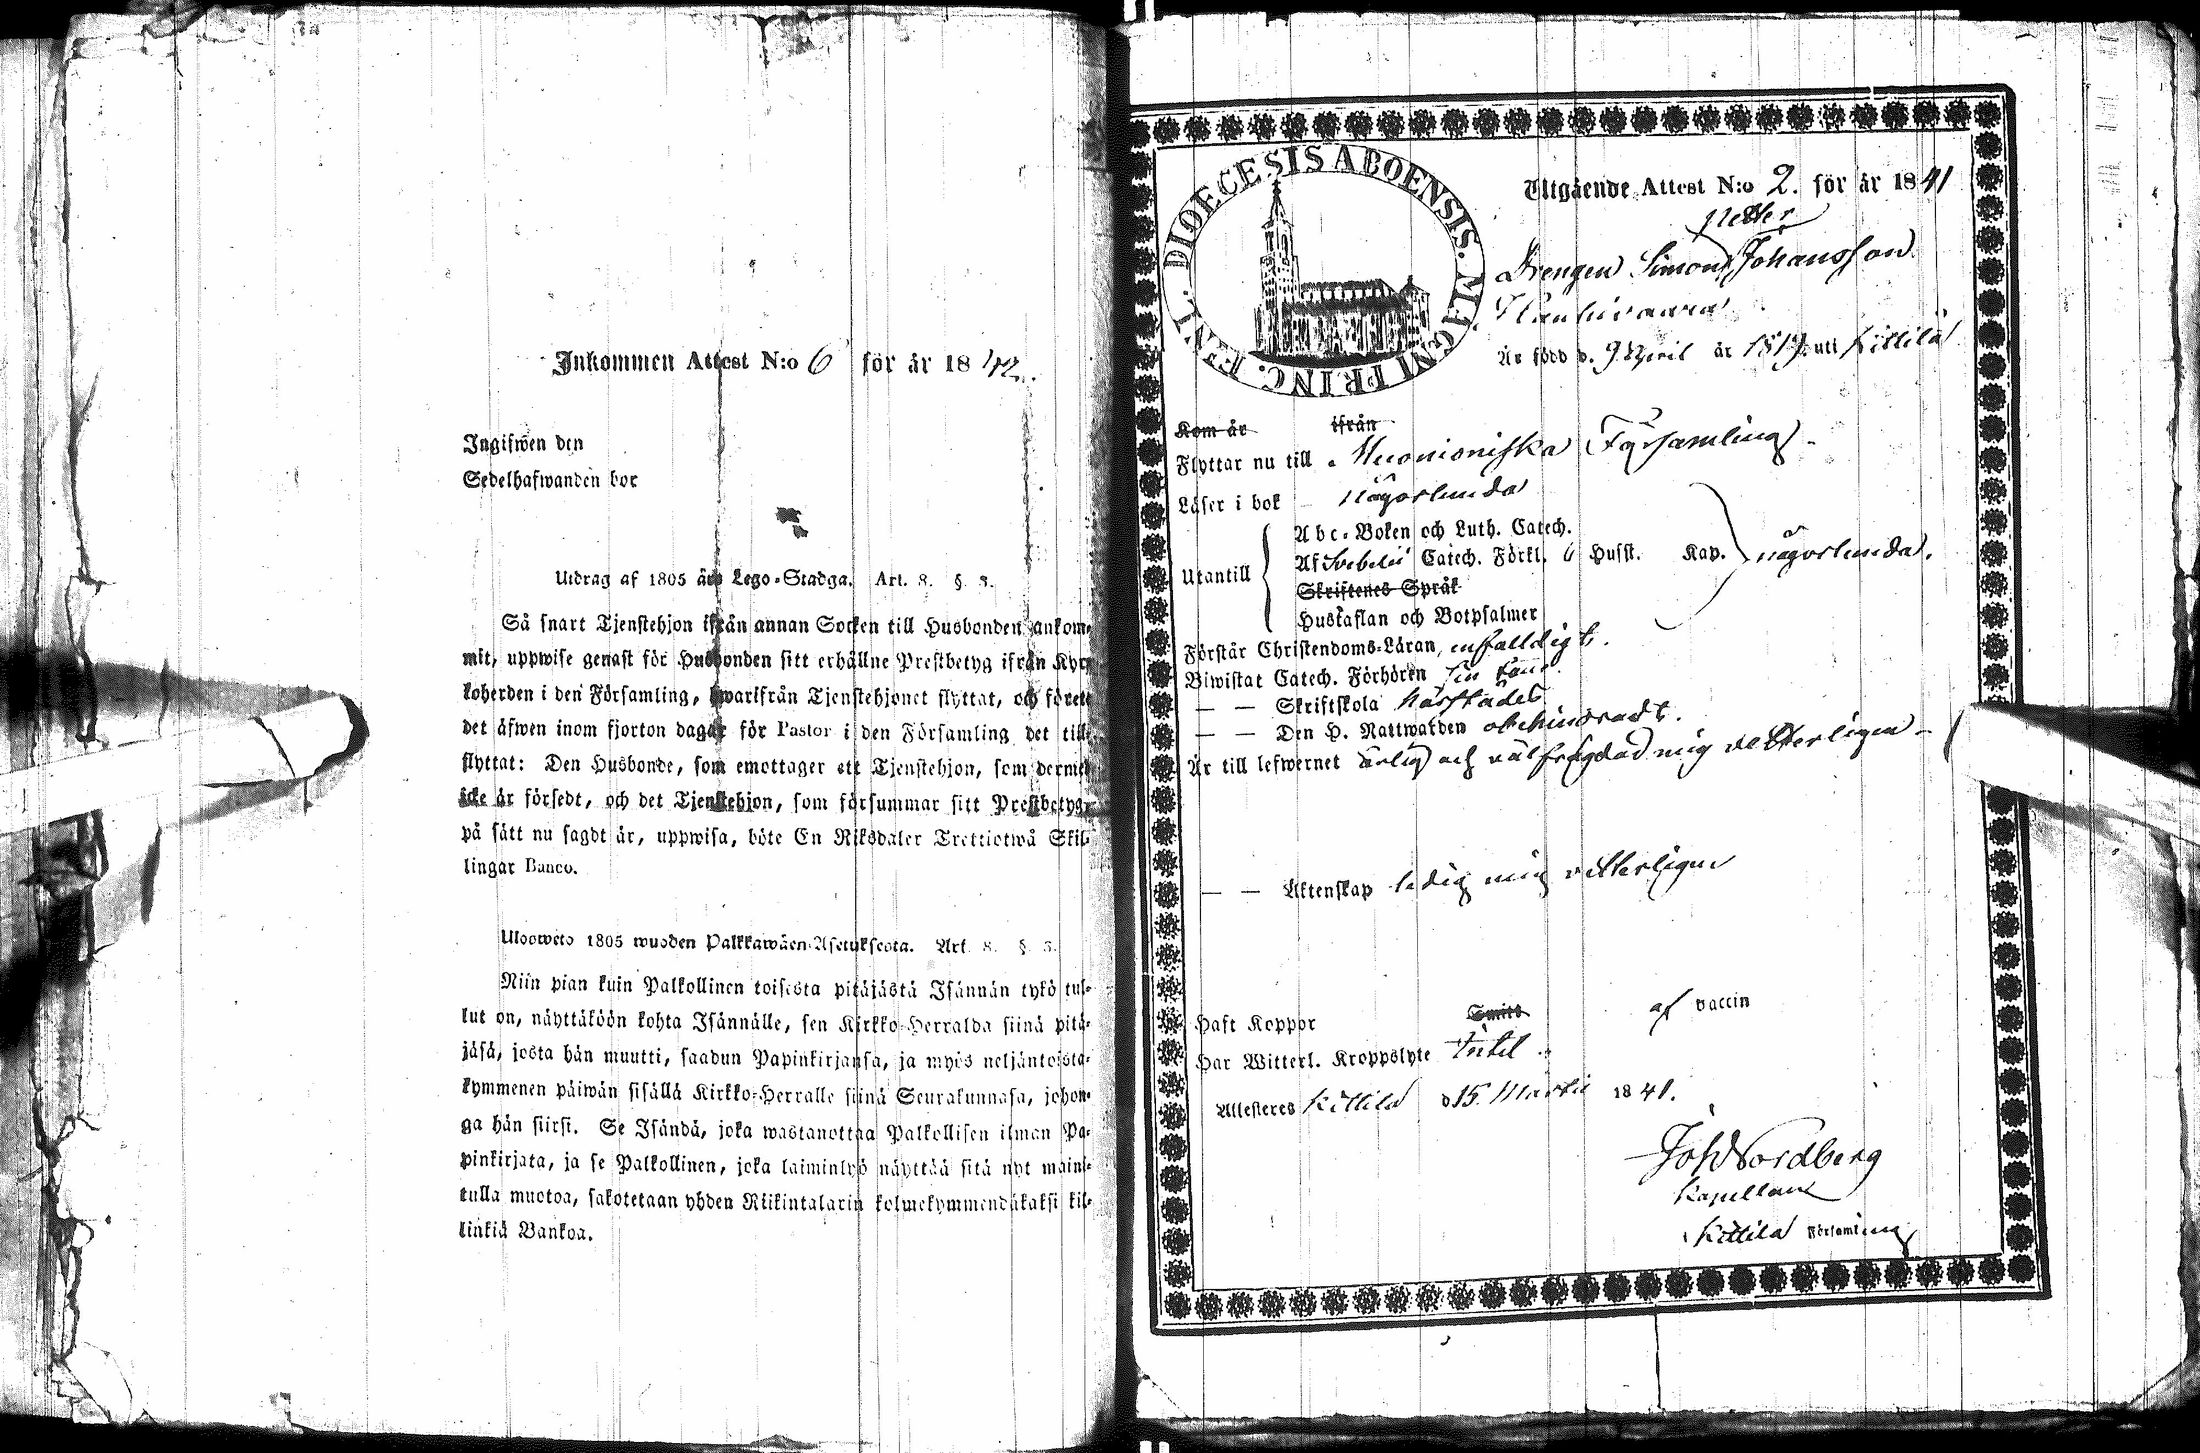 Inkommen Attest N:o 6 för år 1842.
Ingifwen den
Sedelhafwanden bor
Utdrag af 1805 års Lego-Stadga. Art. 8. § 3.
Så snart Tjenstehjon ifrån annan Socken till Husbonden ankom-
mit, uppwise genast för Husbonden sitt erhållne Prestbetyg ifrån Kyr-
koherden i den Församling, hwarifrån Tjenstehjonet flyttat, och förete
det äfwen inom fjorton dagar för Pastor i den Församling det till-
flyttat: Den Husbonde, som emottager ett Tjenstehjon, som dermed
icke är försedt, och det Tjenstehjon, som försummar sitt Prestbetyg,
på sätt nu sagdt är, uppwisa, böte En Riksdaler Trettiotwå Skil-
lingar Banco.
Ulosweto 1805 wuoden Palkkawäen-Asetuksesta. Art. 8. § 3.
Niin pian kuin Palkollinen toisesta pitäjästä Isännän tykö tul-
lut on, näyttäköön kohta Isännälle, sen Kirkko-Herralda siinä pitä-
jäsä, josta hän muutti, saadun Papinkirjansa, ja myös neljäntoista-
kymmenen päiwän sisällä Kirkko-Herralle siinä Seurakunnasa, johon-
ga hän siirsi. Se Isändä, joka wastanottaa Palkollisen ilman Pa-
pinkirjata, ja se Palkollinen, joka laiminlyö näyttää sitä nyt maini-
tulla muotoa, sakotetaan yhden Riikintalarin kolmekymmendäkaksi kil-
linkiä Bankoa.
DIOECESIS ABOENSIS. MAGNI PRINC. FENNL.
Utgående Attest N:o 2. för år 1841
Petter
Drengen Simon Johansson
Haukivaara
Är född d. 9 April år 1819. uti Kittilä
Kom år ifrån
Flyttar nu till Muonioniska Församling.
Läser i bok någorlunda
Abc-Boken och Luth. Catech.
Af Svebelii Catech. Förkl. Husst. Kap. någorlunda.
Utantill
Skriftenes Språk
Hustaflan och Botpsalmer
Förstår Christendoms-Läran, enfaldigt.
Biwistat Catech. Förhören
— — Skriftskola härstädes
— — Den H. Nattwarden obehindradt.
Är till lefwernet ärlig och välfrägdad mig vetterligen
— — Äktenskap ledig mig vetterligen
Haft Koppor Smitt af vaccin
Har Witterl. Kroppslyte Intet
Attesteres Kittilä d 15 Martii 1841.
Joh Nordberg
Kapellan
i Kittilä Församling